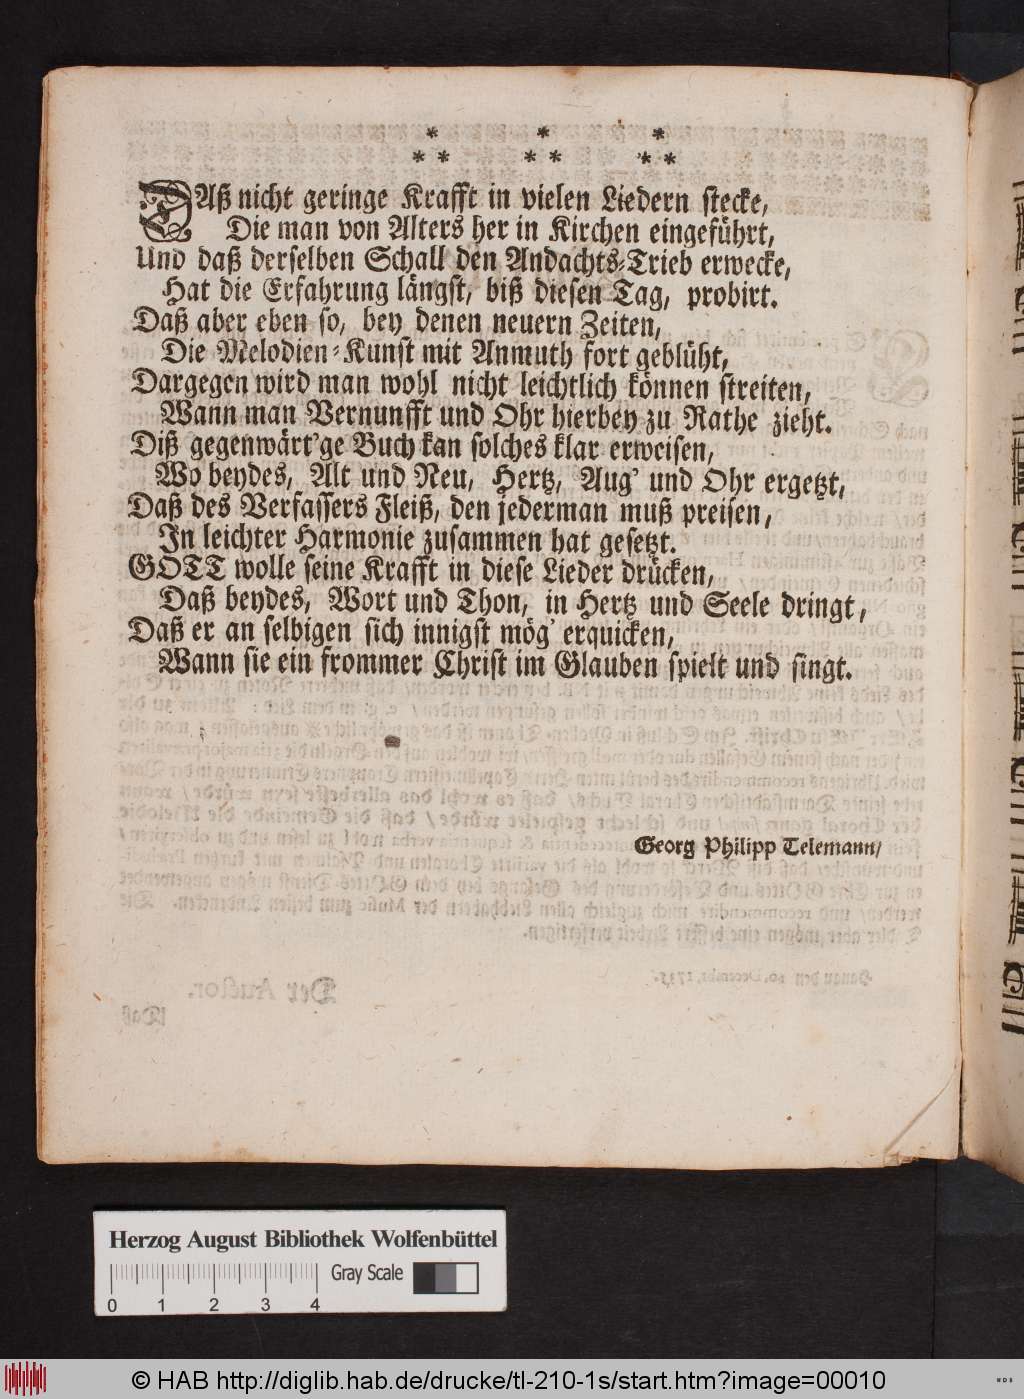 * * *
** ** **
DAß nicht geringe Krafft in vielen Liedern stecke,
Die man von Alters her in Kirchen eingeführt,
Und daß derselben Schall den Andachts-Trieb erwecke,
Hat die Erfahrung längst, biß diesen Tag, probirt.
Daß aber eben so, bey denen neuern Zeiten,
Die Melodien-Kunst mit Anmuth fort geblüht,
Dargegen wird man wohl nicht leichtlich können streiten,
Wann man Vernunfft und Ohr hierbey zu Rathe zieht.
Diß gegenwärt'ge Buch kan solches klar erweisen,
Wo beydes, Alt und Neu, Hertz, Aug' und Ohr ergetzt,
Daß des Verfassers Fleiß, den jederman muß preisen,
In leichter Harmonie zusammen hat gesetzt.
GOTT wolle seine Krafft in diese Lieder drücken,
Daß beydes, Wort und Thon, in Hertz und Seele dringt,
Daß er an selbigen sich innigst mög' erquicken,
Wann sie ein frommer Christ im Glauben spielt und singt.
Georg Philipp Telemann/
Herzog August Bibliothek Wolfenbüttel
Gray Scale
0 1 2 3 4
© HAB http://diglib.hab.de/drucke/tl-210-1s/start.htm?image=00010